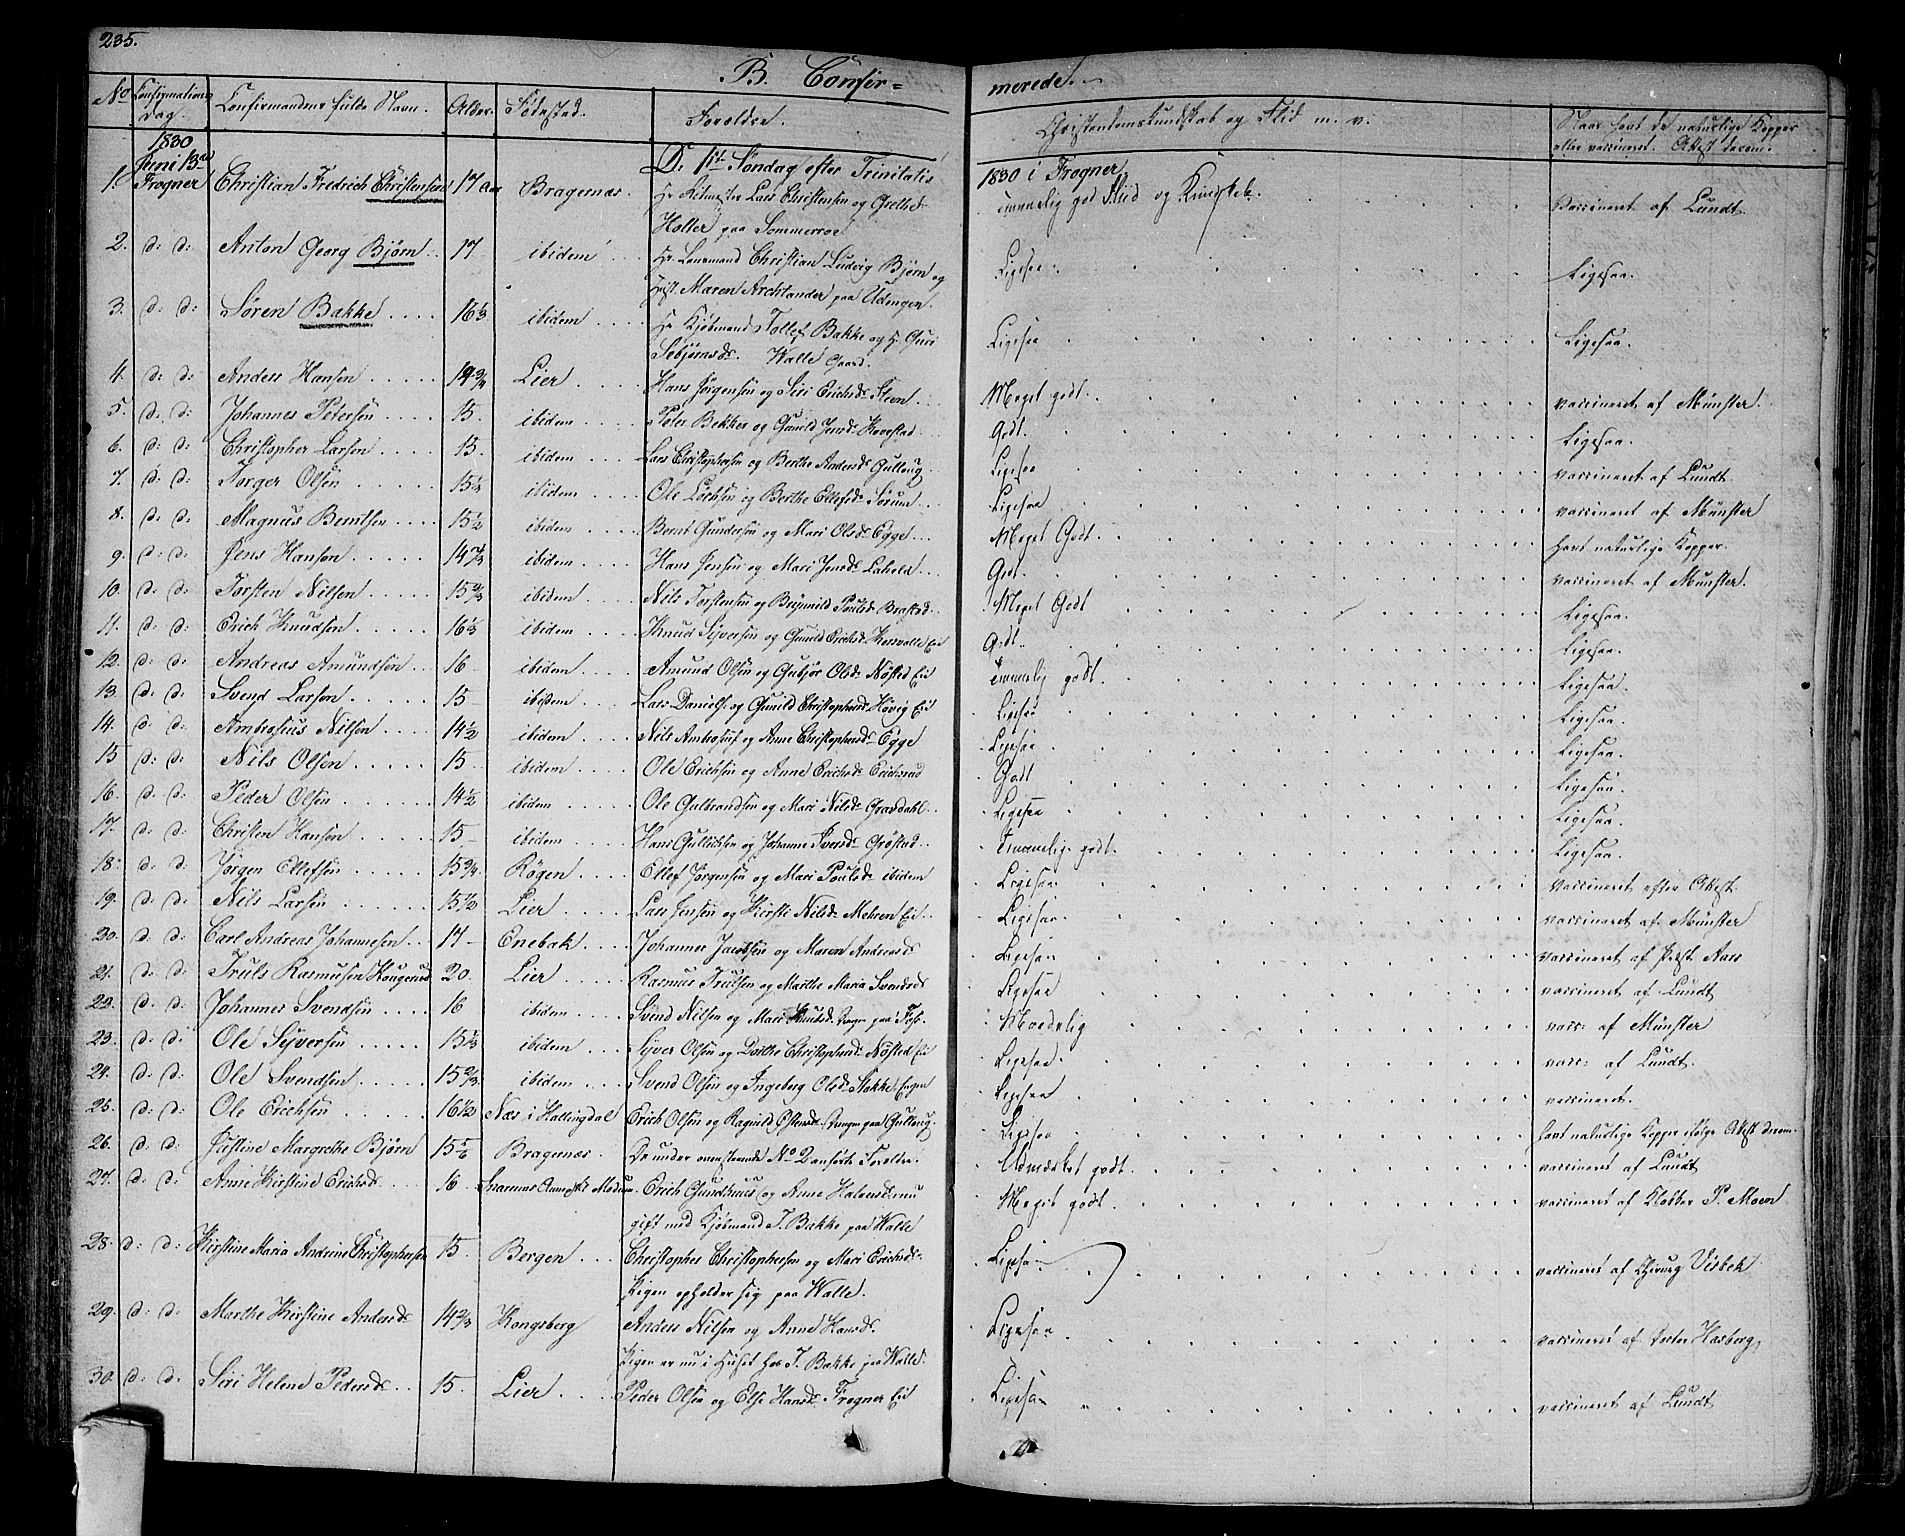 235.
B. Confir= merede.
No Confirmations Dag. Confirmandens fulde Navn. Alder. Fødested. Forældre. Christendomskundskab og Flid m. v. Naar havt de naturlige Kopper eller vaccineret. Attest derom.
1830 Juni 13de D. 1ste Søndag efter Trinitatis 1830 i Frogner
1. Frogner Christian Fredrich Christensen 17 Aar Bragernæs. Hr. Ritmester Lars Christensen og Grethe Holter paa Sommerroe temmelig god Fliid og Kundskab. Vaccineret af Lundt
2. d: d: Anton Georg Bjørn 17 ibidem Hr. Lensmand Christian Ludvig Bjørn og Maren Archtander paa Udengen. Ligesaa Ligesaa.
3. d: d: Søren Bakke 16 1/3 ibidem Hr Kjøbmand Tollef Bakke og Guri Sebjørnsd. Walle Gaard. Ligesaa Ligesaa.
4. d: d: Anders Hansen 14 3/4 Lier Hans Jørgensen og Siri Erichsd. Steen Meget godt. vaccineret af Münster.
5. d. d: Johannes Petersen 15. ibidem Peter Bekker og Gunild Jensd. Hovestad Godt. Ligesaa.
6. d: d: Christopher Larsen 15. ibidem Lars Christophersen og Berthe Andersd. Gulloug Ligesaa vaccineret af Lundt.
7. d: d: Torger Olsen 15 1/4 ibidem Ole Larsen og Berthe Ellefsd. Sørum Ligesaa vaccineret af Münster
8. d: d: Magnus Berntsen 15 1/2 ibidem Bernt Gundersen og Mari Olsd. Egge Meget Godt. havt naturlige Kopper.
9. d: d: Jens Hansen 14 3/4 ibidem Hans Jensen og Mari Jensd. Lahelle Godt. vaccineret af Münster.
10. d: d: Torsten Nilsen 15 2/3 ibidem Nils Torstensen og Brynnild Poulsd. Brastad Meget Godt Ligesaa.
11. d: d: Erich Knudsen 16 1/3 ibidem Knud Syversen og Gunild Erichsd. Horvalle Eie Godt. Ligesaa.
12. d: d: Andreas Amundsen 16 ibidem Amund Olsen og Gubjør Olsd. Nøsted Eie temmelig godt. Ligesaa.
13. d: d: Svend Larsen 15 ibidem Lars Danielsen og Gunild Christophersd. Høvig Eie Ligesaa Ligesaa.
14. d: d: Ambrosius Nilsen 14 1/2 ibidem Nils Ambrosius og Anne Christophersd. Egge Ligesaa Ligesaa.
15 d: d: Nils Olsen 15 ibidem Ole Erichsen og Anne Erichsd. Erichsrud Godt Ligesaa.
16. d: d: Peder Olsen 14 1/2 ibidem Ole Gulbrandsen og Mari Nilsd. Gravdahl Ligesaa Ligesaa.
17. d: d: Christen Hansen 15 ibidem Hans Gullichsen og Johanne Iversd. Grøstad Temmelig godt. Ligesaa.
18. d: d: Jørgen Ellefsen 15 3/4 Røgen Ellef Jørgensen og Mari Poulsd. ibidem Ligesaa vaccineret efter Attest.
19. d: d: Nils Larsen 15 1/2 Lier Lars Jensen og Kirsti Nilsd. Mehren Eie Ligesaa. vaccineret af Münster
20. d: d: Carl Andreas Johannesen 17 Enebak Johannes Jacobsen og Maren Andersd. Ligesaa vaccineret af Præst Aars
21. d: d: Truls Rasmusen Haugerud 20. Lier Rasmus Trulsen og Marthe Maria Svendsd. Ligesaa vaccineret af Lundt
22. d: d: Johannes Svendsen 16 ibidem Svend Nilsen og Mari Knudsd. Maadelig vacc: af Münster
23. d: d: Ole Syversen 15 1/3 ibidem Syver Olsen og Dorthe Christophersd. Nøsted Eie Ligesaa vacc: af Lundt.
24. d: d: Ole Svendsen 15 2/3 ibidem Svend Olsen og Ingeberg Olsd. Stakke Engen Ligesaa vaccineret.
25. d: d: Ole Erichsen 16 1/2 Næs i Hallingdal Erich Olsen og Ragnild Østensd. Drengen paa Gulloug. Ligesaa havt naturlige Kopper ifølge Attest derom.
26. d: d: Justine Margrethe Bjørn 15 5/6 Bragernæs. De under ovenstaaende No 2 anførte Forældre. Udmærket godt. vaccineret af Lundt
27. d: d: Anne Kirstine Erichsd. 16 Snarums Annex til Modum. Erich Gundhuus og Anne Halvorsd. nu gift med Kjøbmand T. Bakke paa Walle Meget godt. vaccineret af Klokker P. Moen
28. d: d: Kirstine Maria Andrine Christophersen 15. Bergen Christopher Christophersen og Mari Erichsd. Pigen opholder sig paa Walle. Ligesaa vaccineret af Chirurg Visbek
29. d: d: Marthe Kirstine Andersd. 14 2/3 Kongsberg Anders Nilsen og Anne Hansd. Pigen er nu i Huset hos T. Bakke paa Walle. Ligesaa vaccineret af Doctor Hasberg
30. d: d. Siri Helene Pedersd. 15. Lier Peder Olsen og Else Hansd. Frogner Eie Ligesaa vaccineret af Lundt